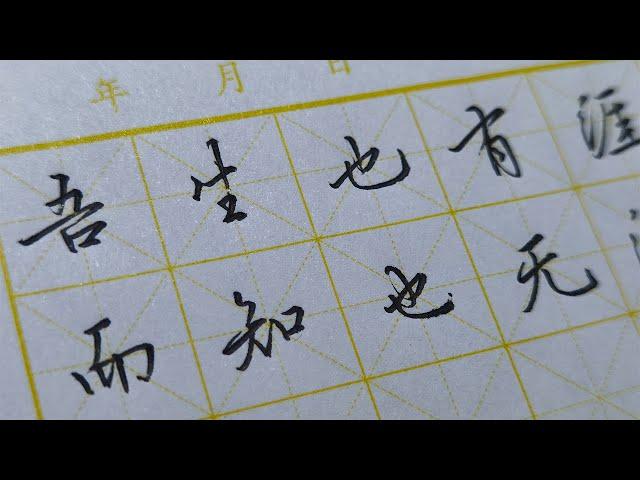 年 月 日
吾生也有涯
而知也无